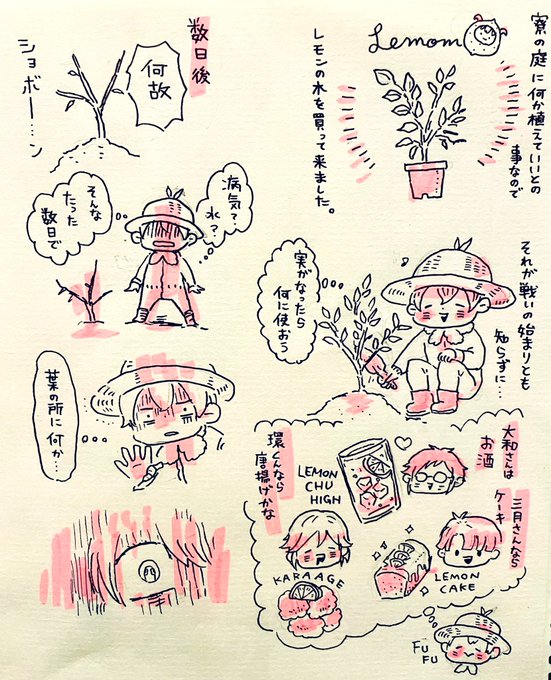 寮の庭に何か植えていいとの
事なので
Lemom
レモンの木を買って来ました。
それが戦いの始まりとも
知らずに…
実がなったら
何に使おう
大和さんは
お酒
LEMON
CHU
HIGH
三月さんなら
ケーキ
LEMON
CAKE
環くんなら
唐揚げかな
KARAAGE
FU
FU
数日後
何故
ショボー…ン
病気?
水?
そんな
たった
数日で
葉の所に何か…